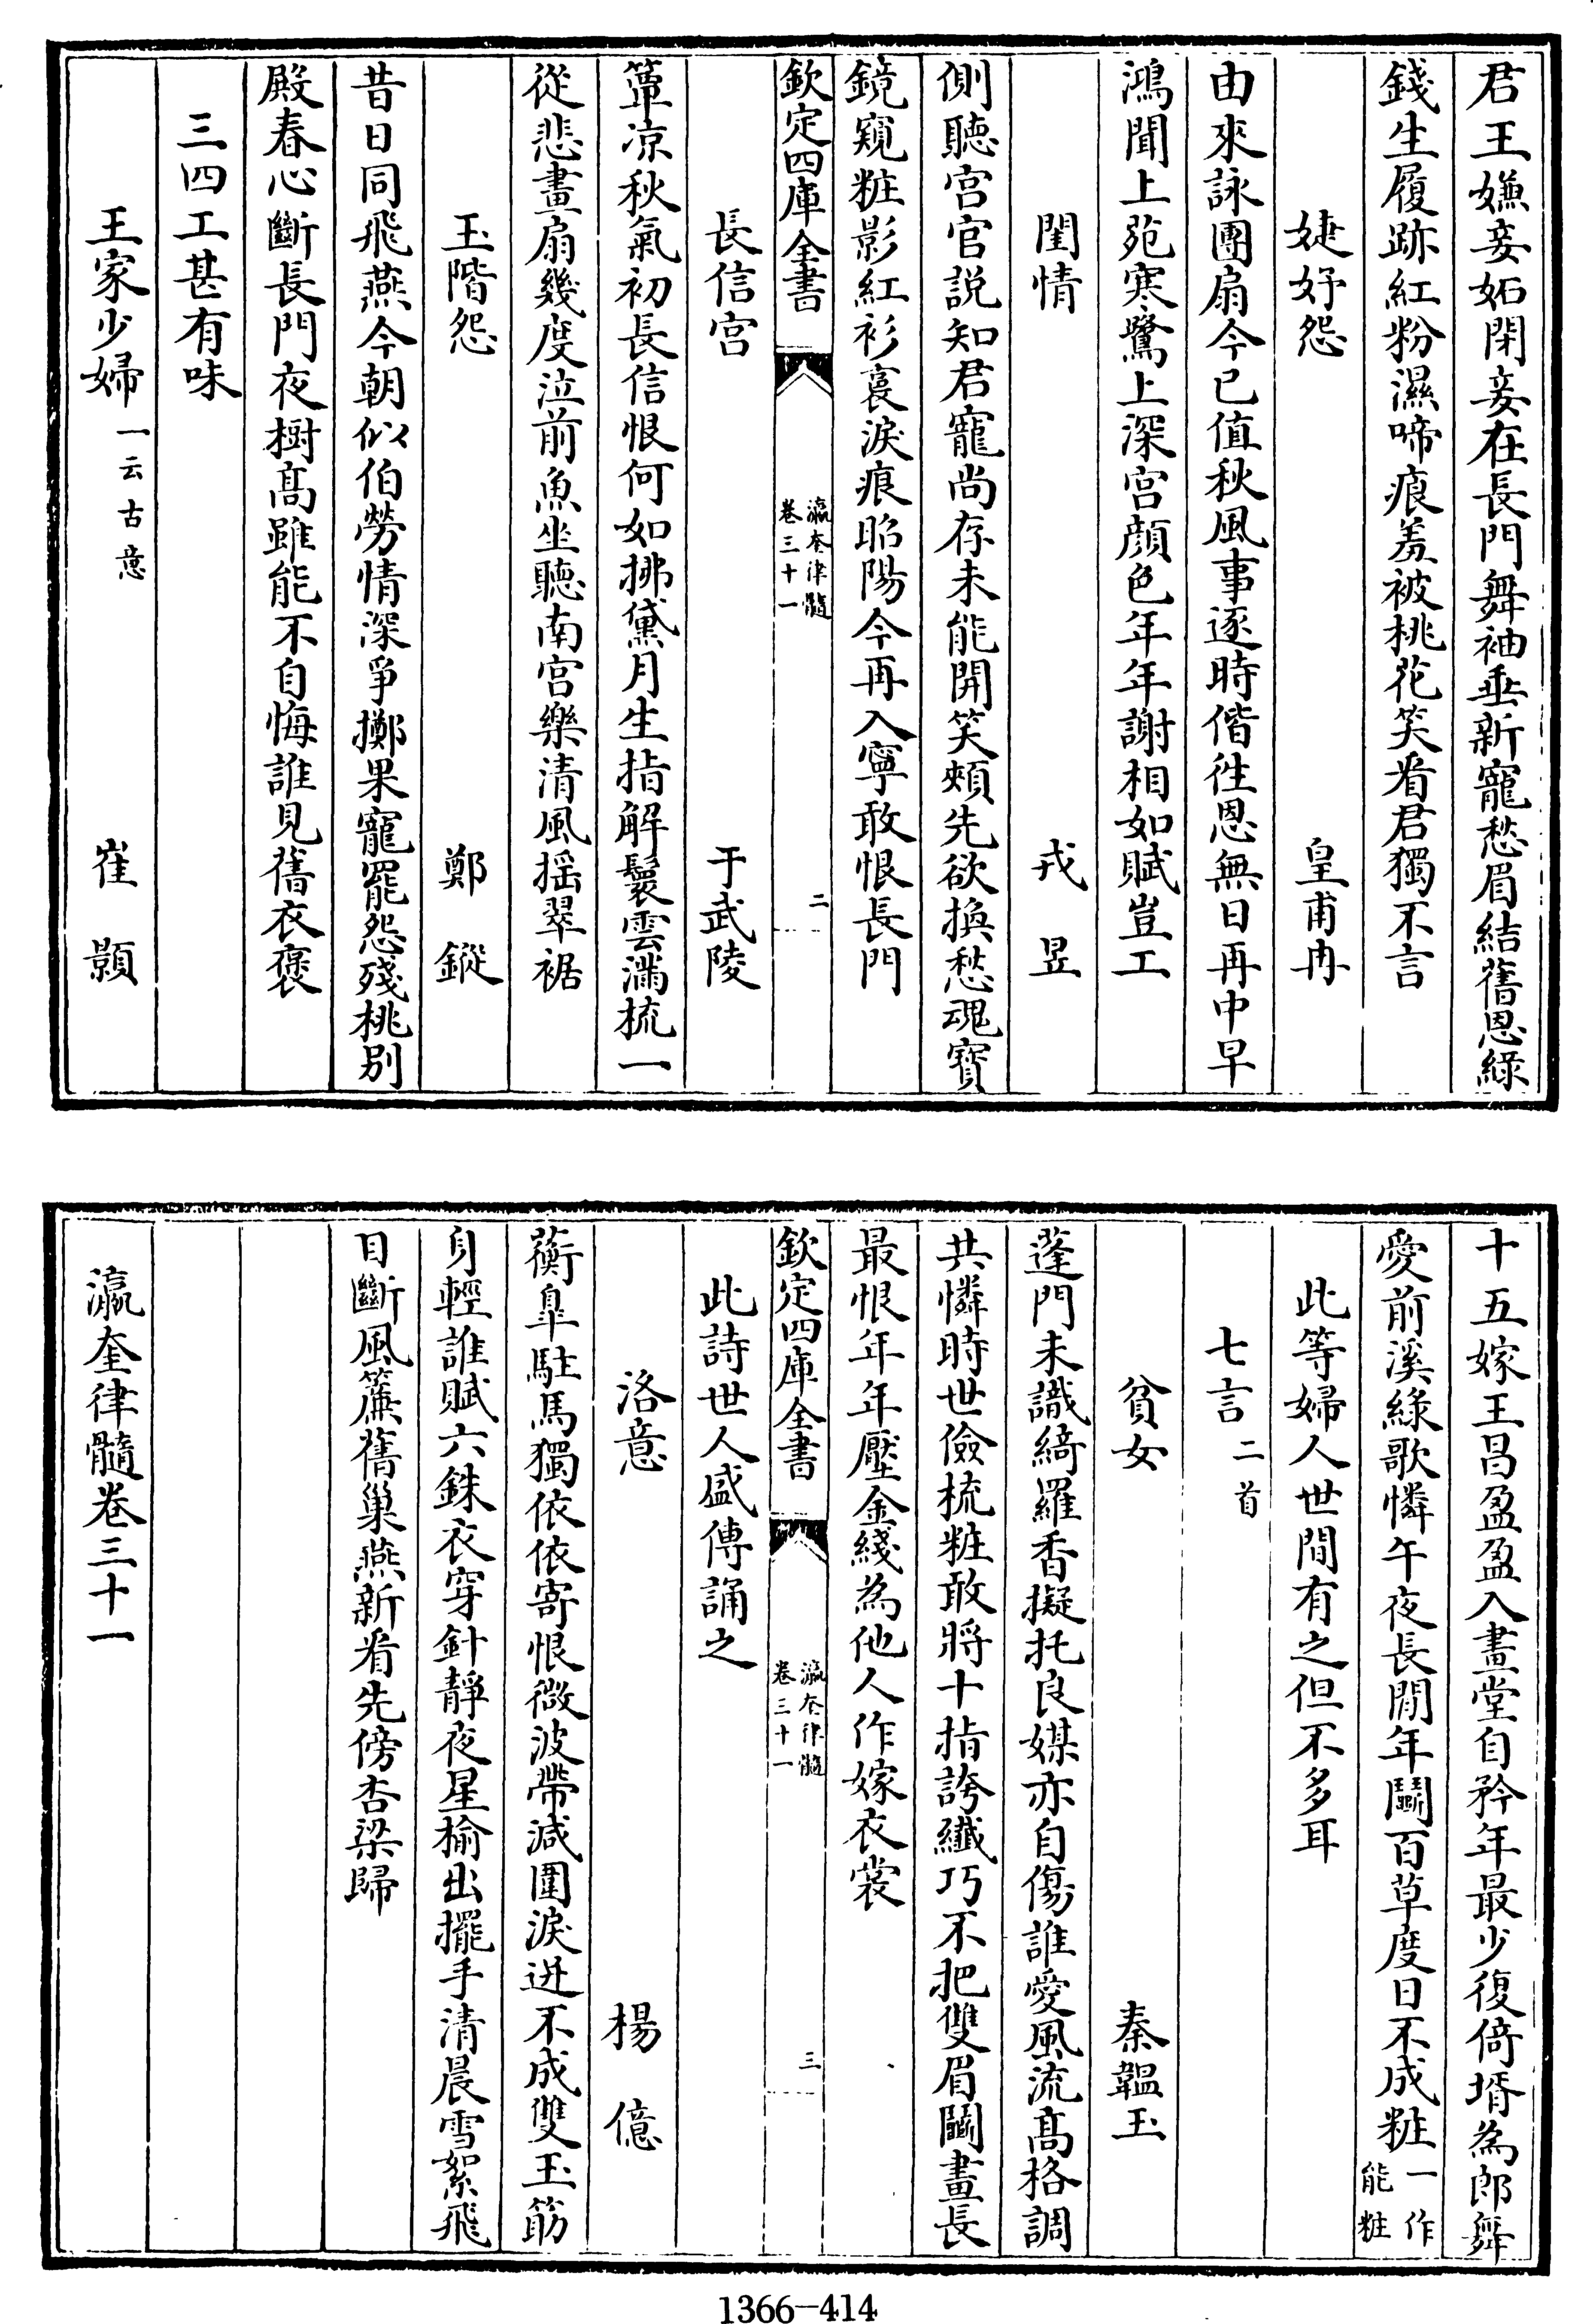 君王嫌妾妬閉妾在長門舞袖垂新寵愁眉結舊恩綠
錢生履跡紅粉濕啼痕羞被桃花笑看君獨不言
婕妤怨 皇甫冉
由來詠團扇今已值秋風事逐時偕往恩無日再中早
鴻聞上苑寒鷺上深宫顔色年年謝相如賦豈工
閨情 戎昱
側聽宫官説知君寵尚存未能開笑頰先欲換愁魂寳
鏡窺粧影紅衫裛淚痕昭陽今再入寧敢恨長門
欽定四庫全書 瀛奎律髓 卷三十一 二
長信宫 于武陵
簟凉秋氣初長信恨何如拂黛月生指解鬟雲滿梳一
從悲畫扇幾度泣前魚坐聽南宫樂清風摇翠裾
玉階怨 鄭鏦
昔日同飛燕今朝似伯勞情深爭擲果寵罷怨殘桃别
殿春心斷長門夜樹髙雖能不自悔誰見舊衣褒
三四工甚有味
王家少婦 一云古意 崔顥
十五嫁王昌盈盈入畫堂自矜年最少復倚壻為郎舞
愛前溪綠歌憐午夜長閒年鬭百草度日不成粧 一作能粧
此等婦人世間有之但不多耳
七言 二首
貧女 秦韞玉
蓬門未識綺羅香擬托良媒亦自傷誰愛風流髙格調
共憐時世儉梳粧敢將十指誇纖巧不把雙眉鬭畫長
最恨年年壓金綫為他人作嫁衣裳
欽定四庫全書 瀛奎律髓 卷三十一 三
此詩世人盛傳誦之
洛意 楊億
蘅臯駐馬獨依依寄恨微波帶減圍淚迸不成雙玉筯
身輕誰賦六銖衣穿針靜夜星榆出擺手清晨雪絮飛
目斷風簾舊巢燕新看先傍杏梁歸
瀛奎律髓卷三十一
1366-414